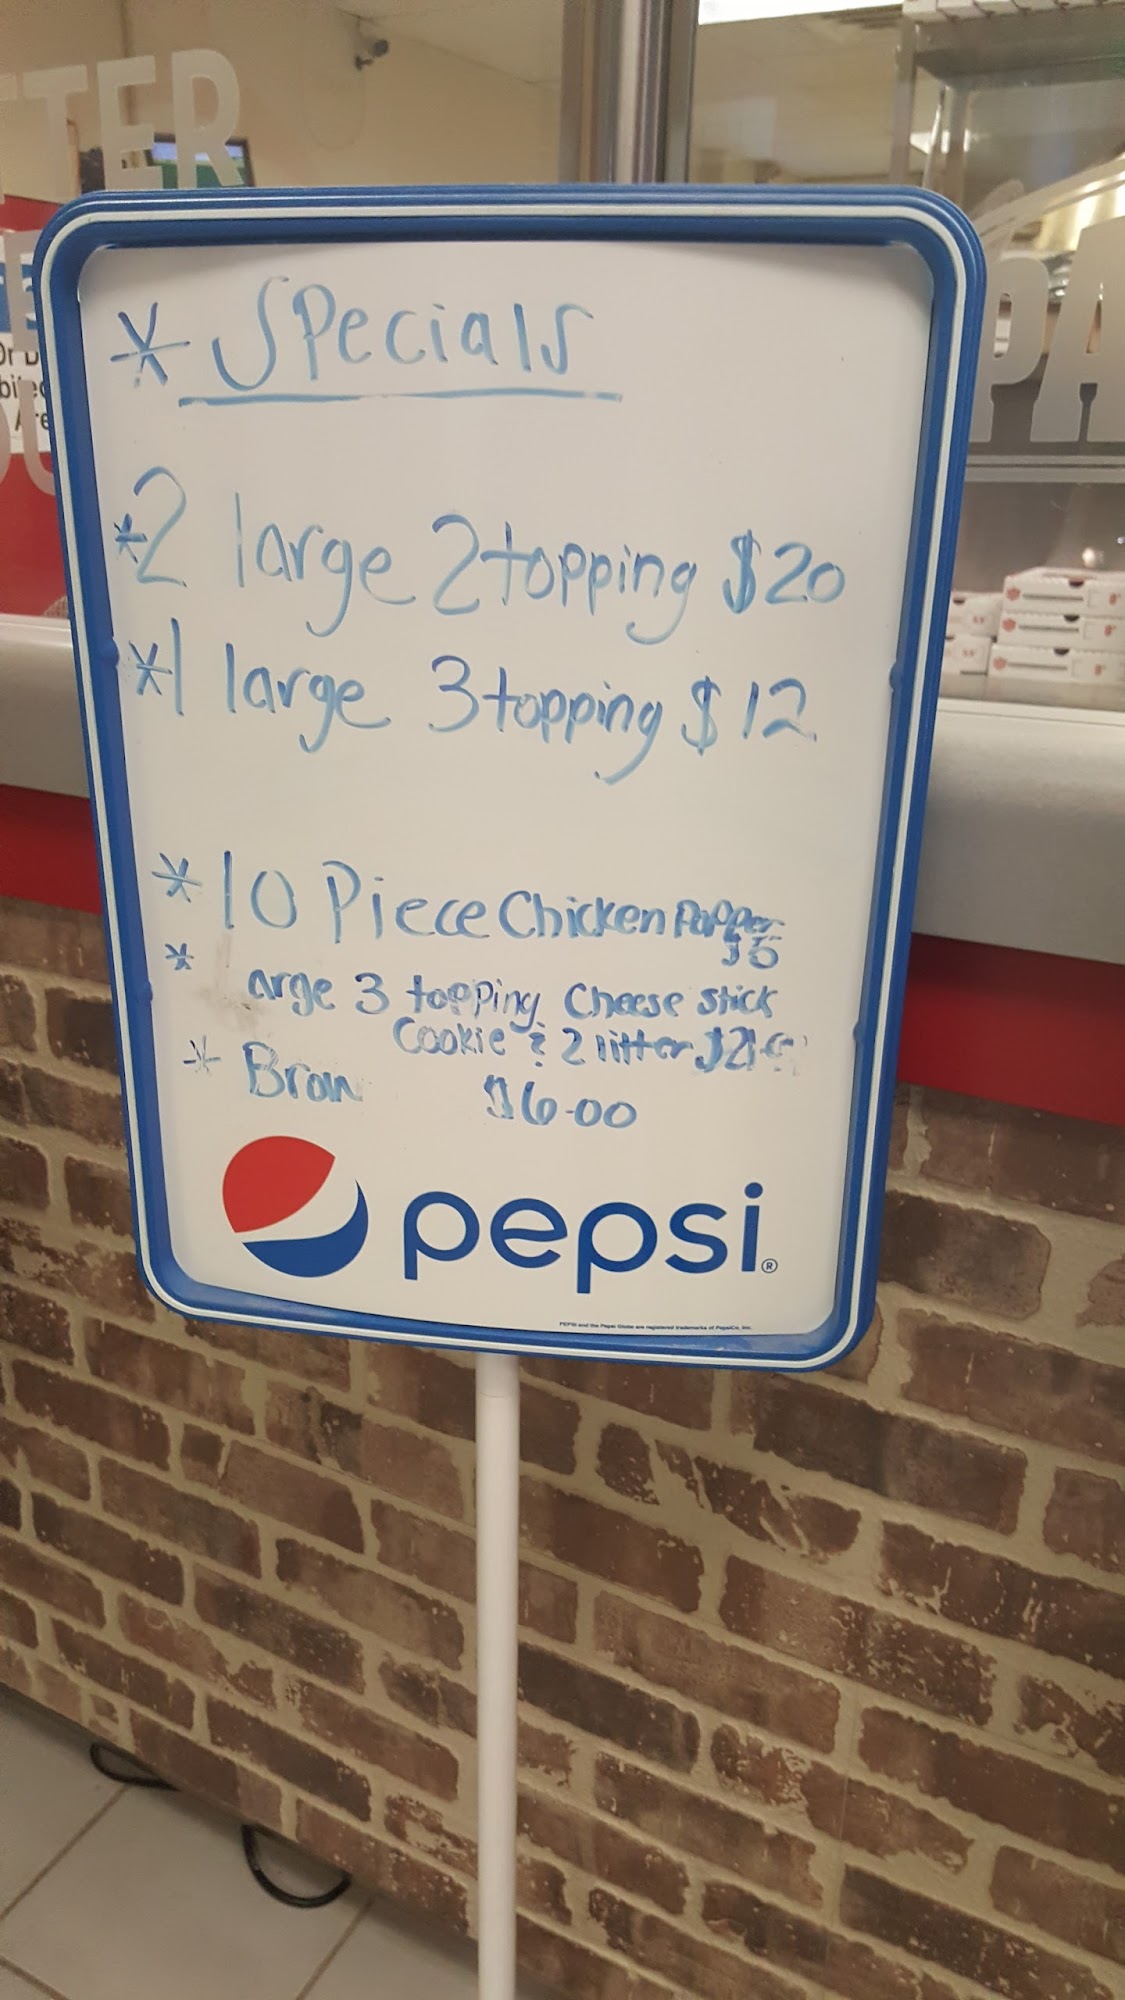 TTER
* Specials
*2 large 2 topping $20
*1 large 3 topping $12
* 10 Piece Chicken Popper
$5
*
arge 3 topping Cheese stick
Cookie & 2 litter
* Brow $6.00
pepsi®
PEPSI and the Pepsi Globe are registered trademarks of PepsiCo, Inc.
PA